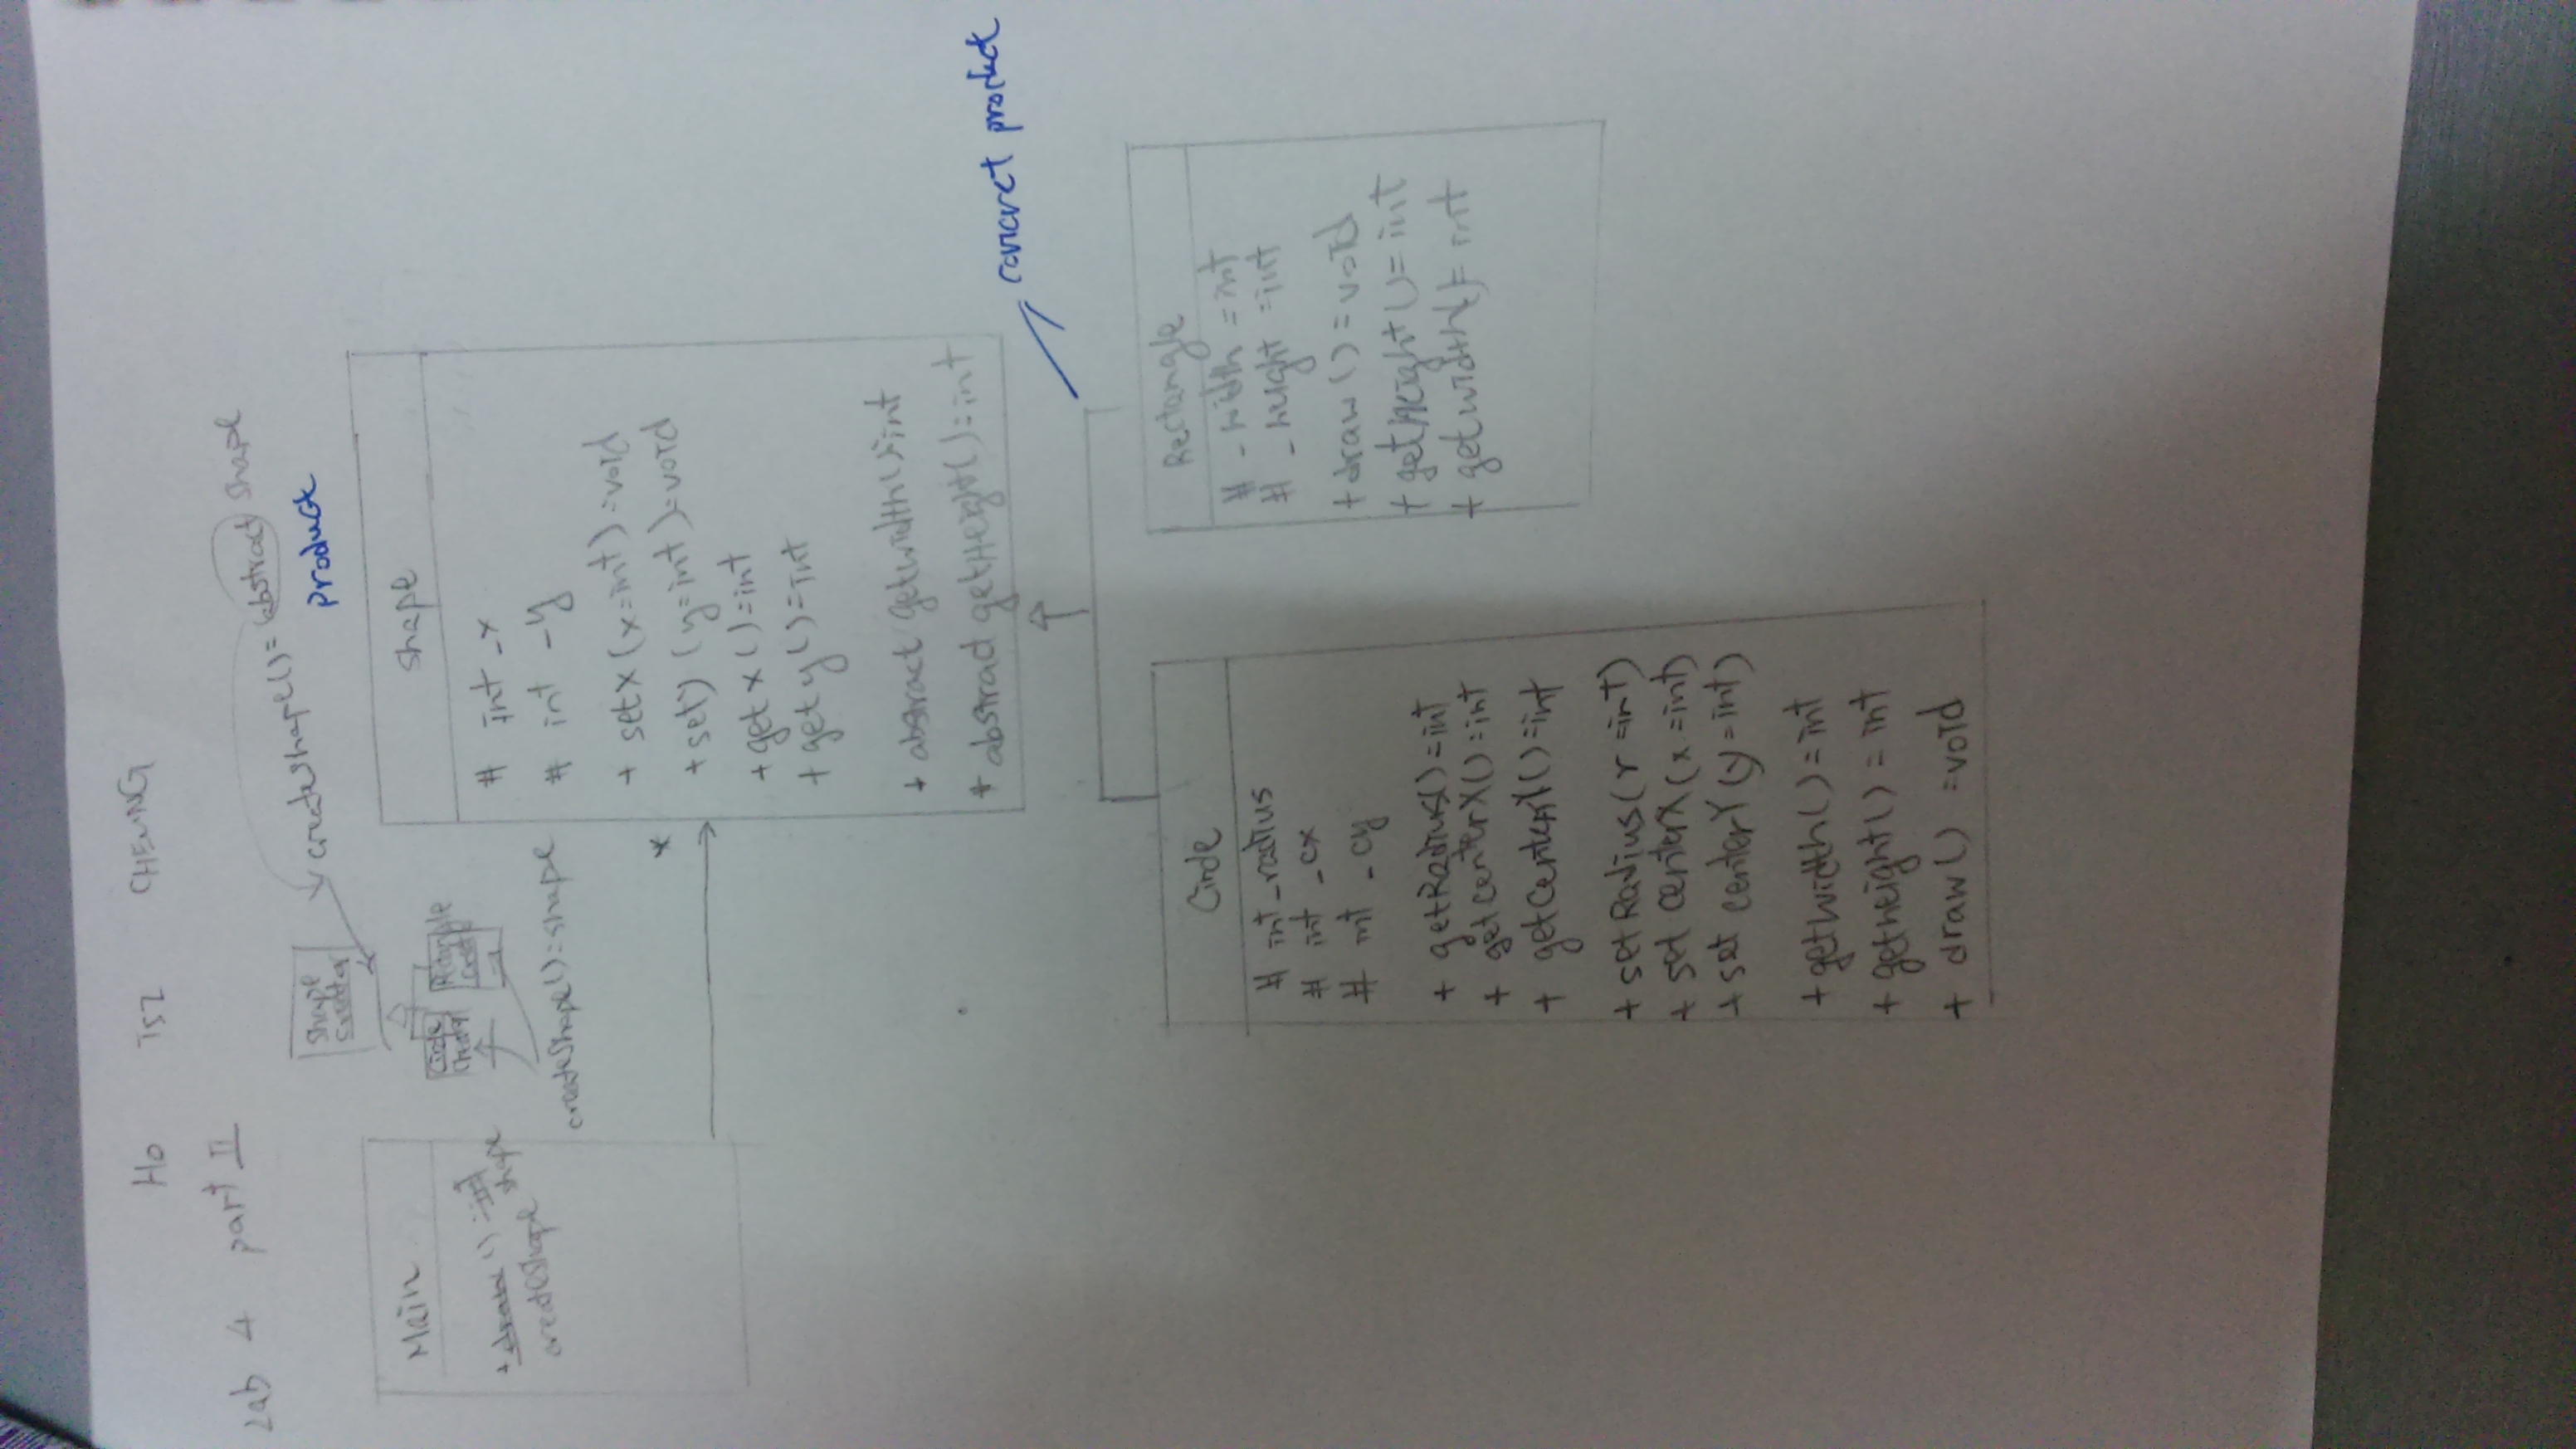 Ho TSZ CHEUNG
Lab 4 part II
createshape() = abstract shape
product
shape
creator
Circle
creator
Rectangle
createshape() = shape
Main
shape
createShape
*
shape
# int _x
# int _y
+ setX (x=int) =void
+ setY (y=int) =void
+ getx () =int
+ gety () =int
+ abstract getwidth() =int
+ abstract getHeight() =int
concrect product
Circle
# int _radius
# int _cx
# int _cy
+ getRadius() =int
+ getCenterX() =int
+ getCenterY() =int
+ setRadius(r =int)
+ set centerX (x =int)
+ set centerY (y =int)
+ getwidth() = int
+ getheight() = int
+ draw() =void
Rectangle
# _width =int
# _height =int
+ draw () = void
+ getHeight () = int
+ getwidth() = int